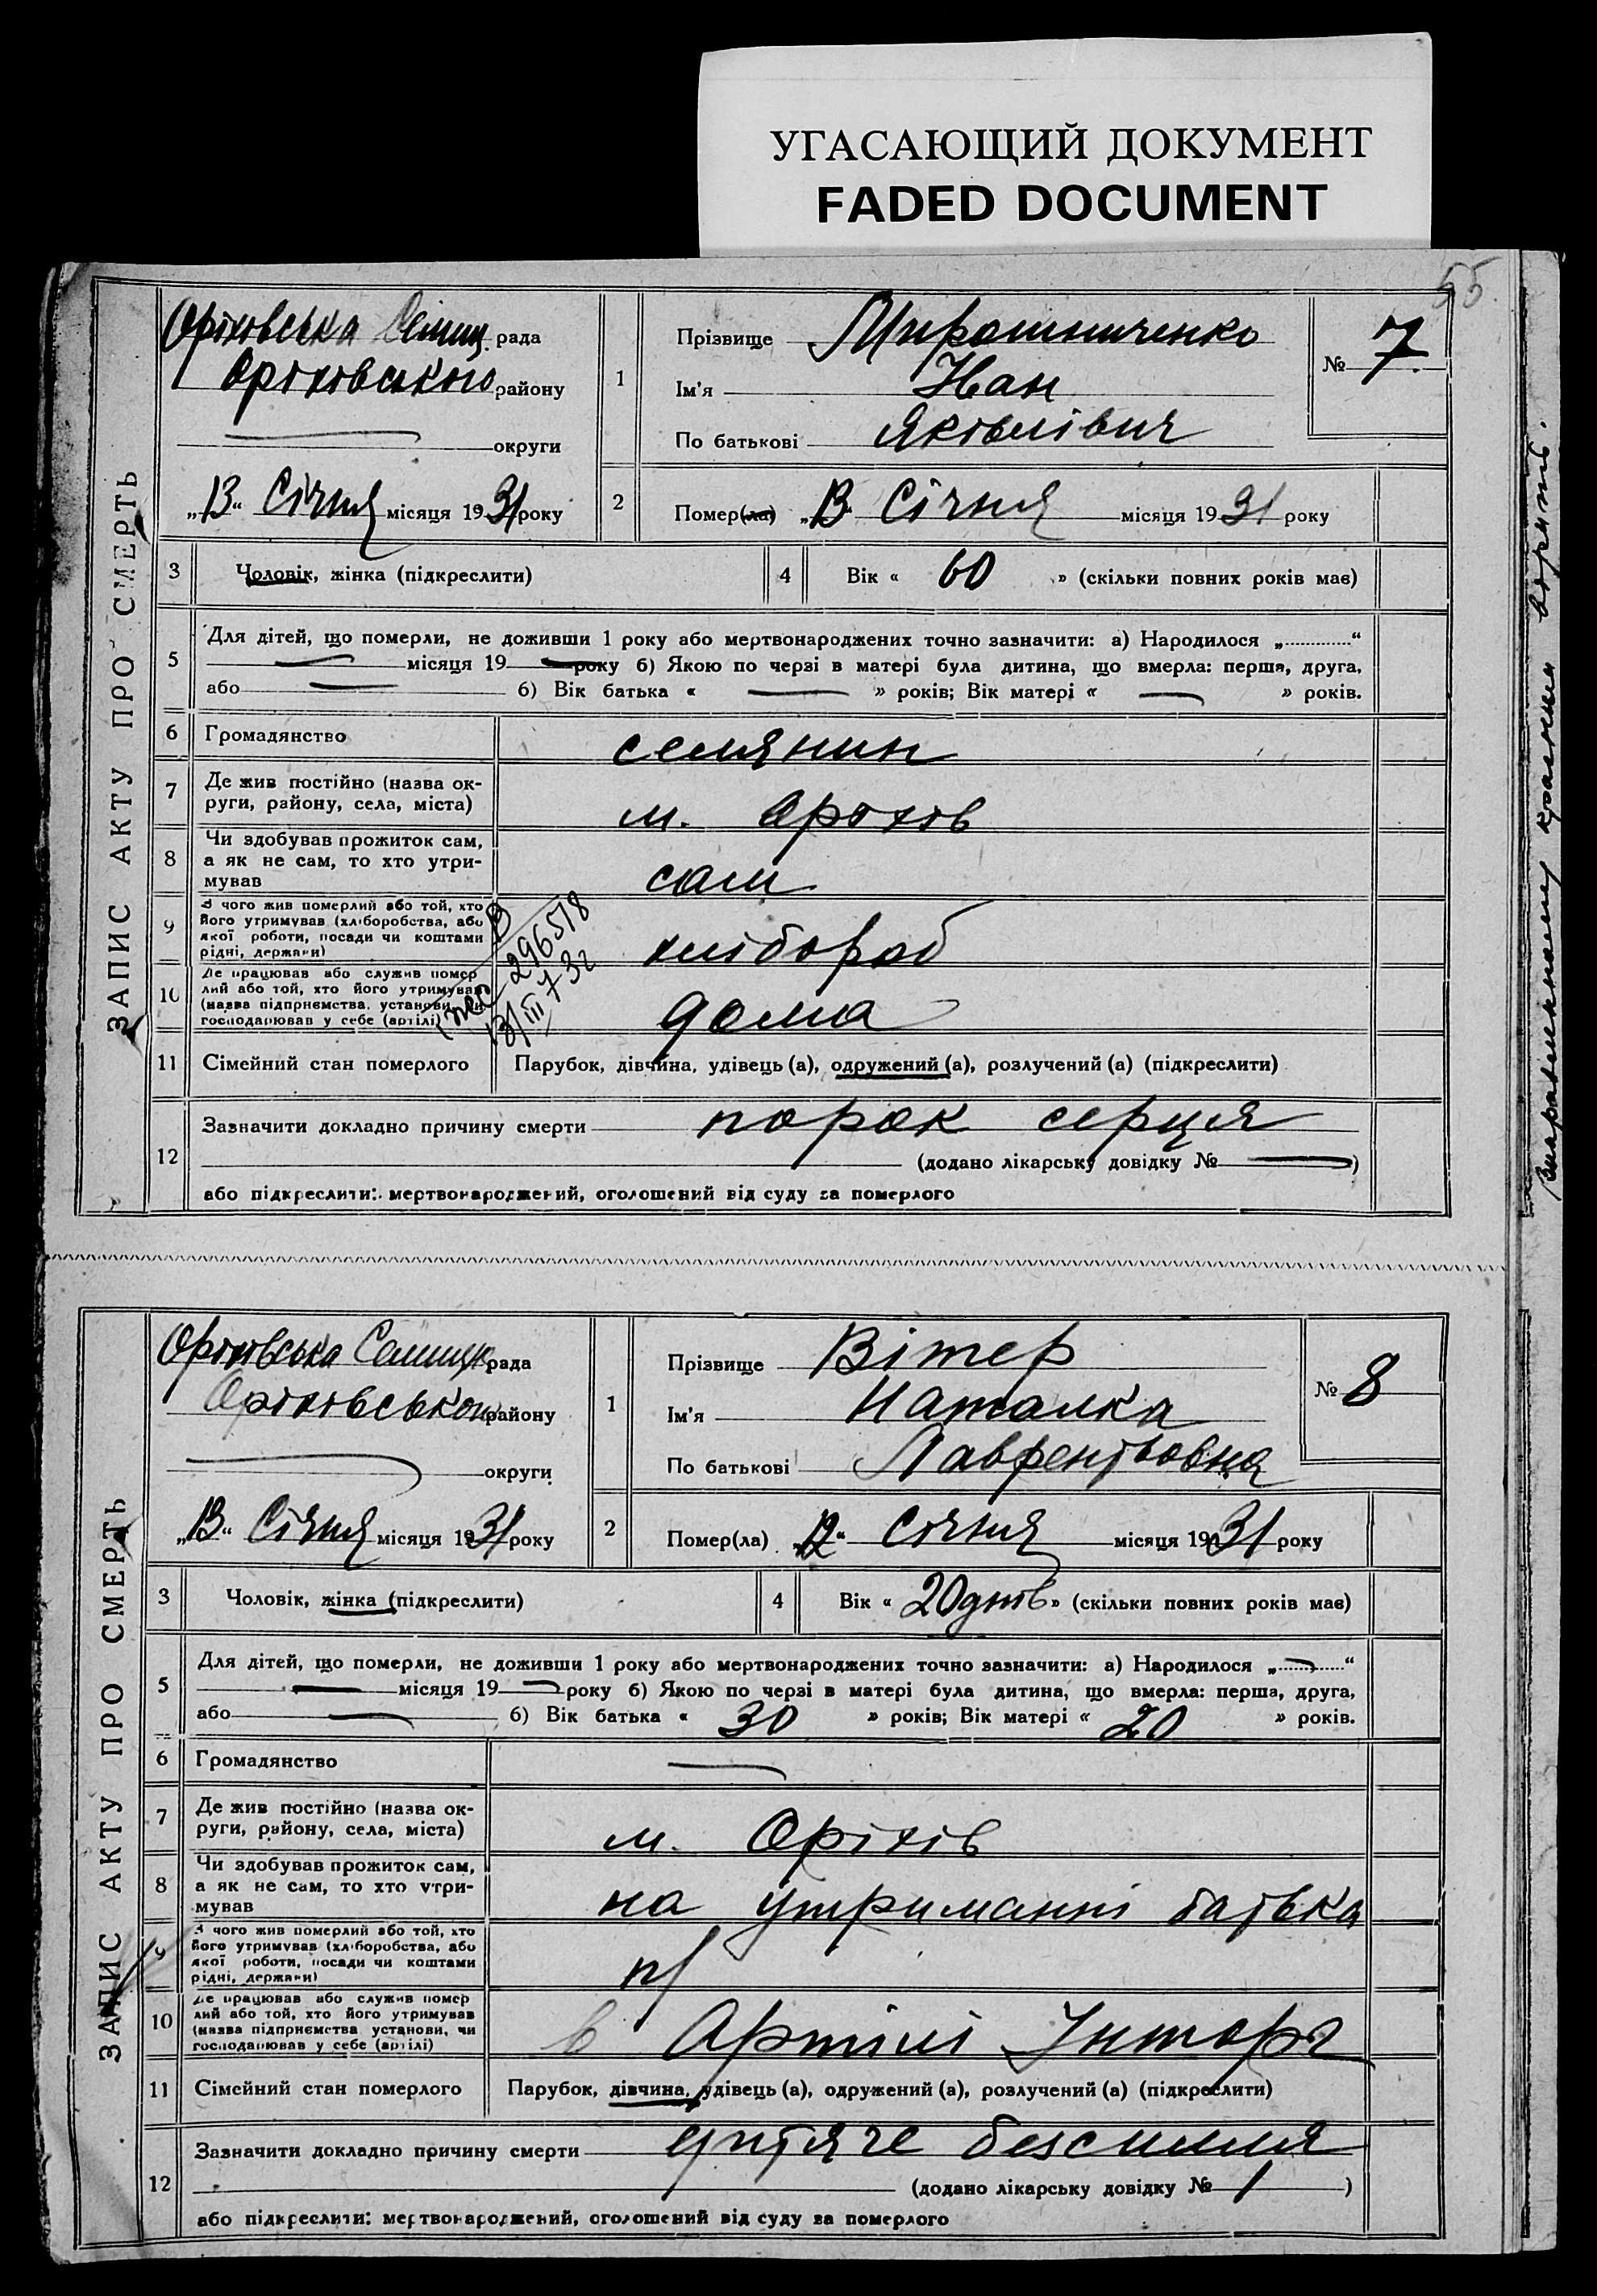 УГАСАЮЩИЙ ДОКУМЕНТ
FADED DOCUMENT
55.
ЗАПИС АКТУ ПРО СМЕРТЬ
Оріховська Селищ. рада
Оріховського району
округи
„13“ Січня місяця 1931 року
1
Прізвище Мирошниченко
Ім'я Иван
По батькові Яковлівич
№ 7
2 Помер(ла) „13“ Січня місяця 1931 року
3 Чоловік, жінка (підкреслити)
4 Вік « 60 » (скільки повних років має)
5 Для дітей, що померли, не доживши 1 року або мертвонароджених точно зазначити: а) Народилося „............“
місяця 19 року б) Якою по черзі в матері була дитина, що вмерла: перша, друга,
або б) Вік батька « » років; Вік матері « » років.
6 Громадянство селянин
7 Де жив постійно (назва ок-
руги, району, села, міста) м. Оріхів
8 Чи здобував прожиток сам,
а як не сам, то хто утри-
мував сам
9 З чого жив померлий або той, хто
його утримував (хліборобства, або
якої роботи, посади чи коштами
рідні, держави) хлібороб
10 Де працював або служив помер
лий або той, хто його утримував
(назва підприємства, установи, чи
господарював у себе (артілі) дома
296518
13/III 73г
11 Сімейний стан померлого Парубок, дівчина, удівець (а), одружений (а), розлучений (а) (підкреслити)
12 Зазначити докладно причину смерти порок серця
(додано лікарську довідку № )
або підкреслити: мертвонароджений, оголошений від суду за померлого
ЗАПИС АКТУ ПРО СМЕРТЬ
Оріховська Селищн рада
Оріховського району
округи
„13“ Січня місяця 1931 року
1
Прізвище Вітер
Ім'я Наталка
По батькові Лаврентьовна
№ 8
2 Помер(ла) „12“ Січня місяця 1931 року
3 Чоловік, жінка (підкреслити)
4 Вік « 20 днів » (скільки повних років має)
5 Для дітей, що померли, не доживши 1 року або мертвонароджених точно зазначити: а) Народилося „............“
місяця 19 року б) Якою по черзі в матері була дитина, що вмерла: перша, друга,
або б) Вік батька « 30 » років; Вік матері « 20 » років.
6 Громадянство
7 Де жив постійно (назва ок-
руги, району, села, міста) м. Оріхів
8 Чи здобував прожиток сам,
а як не сам, то хто утри-
мував на утриманні батька
9 З чого жив померлий або той, хто
його утримував (хліборобства, або
якої роботи, посади чи коштами
рідні, держави)
10 Де працював або служив помер
лий або той, хто його утримував
(назва підприємства установи, чи
господарював у себе (артілі) в Артілі
11 Сімейний стан померлого Парубок, дівчина, удівець (а), одружений (а), розлучений (а) (підкреслити)
12 Зазначити докладно причину смерти дитяче безсилля
(додано лікарську довідку № 1 )
або підкреслити: мертвонароджений, оголошений від суду за померлого